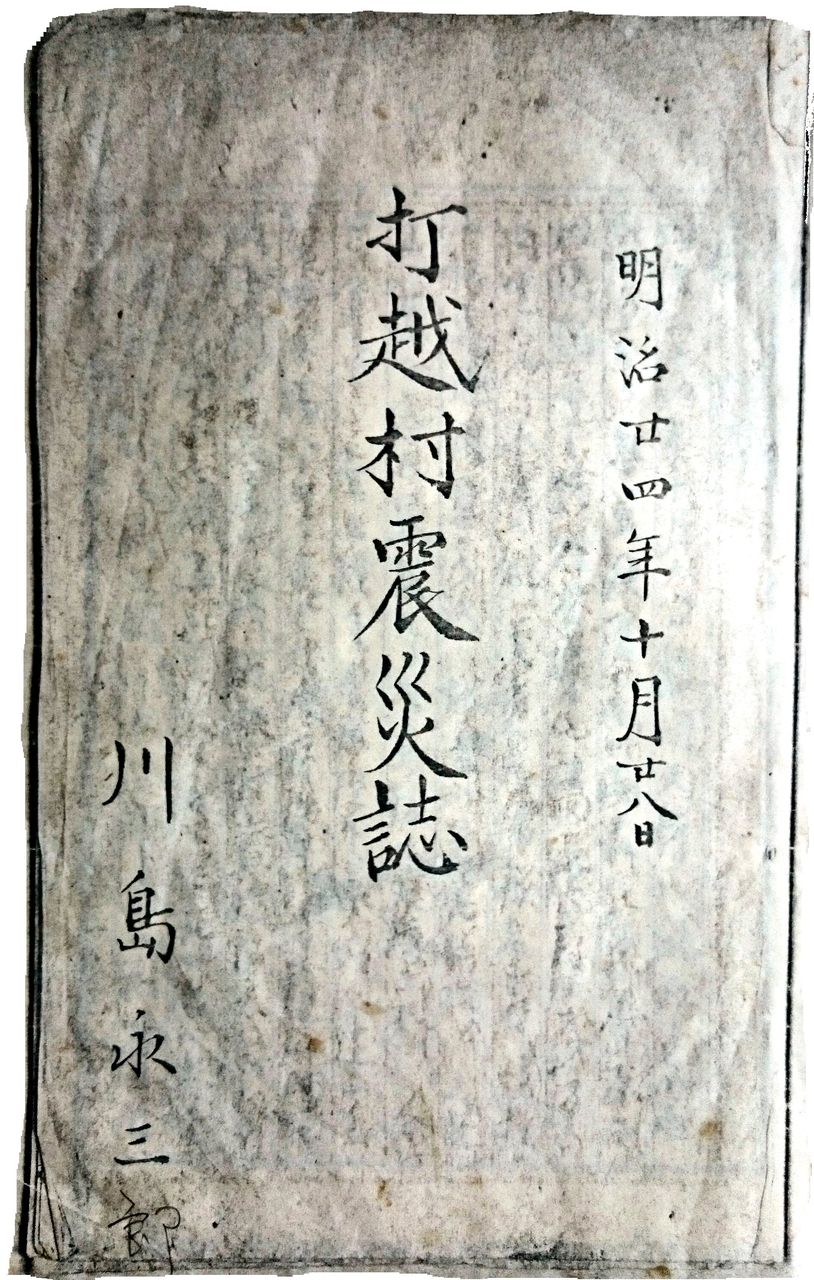 明治廿四年十月廿八日
打越村震災誌
川島永三郎